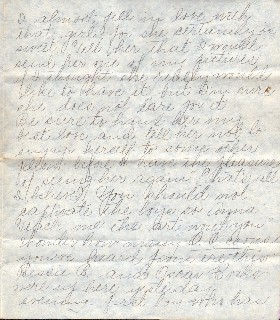 I almost fell in love with
that girl for she certainly is
sweet. Tell her that I would
send her one of my pictures
if I thought she really would
like to have it but I'm sure
she does not care for it
Be sure to give her my
best love and tell her not to
engage herself to some other
before I have the pleasure
of seeing her again. that's all
I believe). You should not
captivate the boys so
me the art won't you
wonder how many
you've heard from
Bessie B. and Oscar
were up here yesterday
evening. first who has